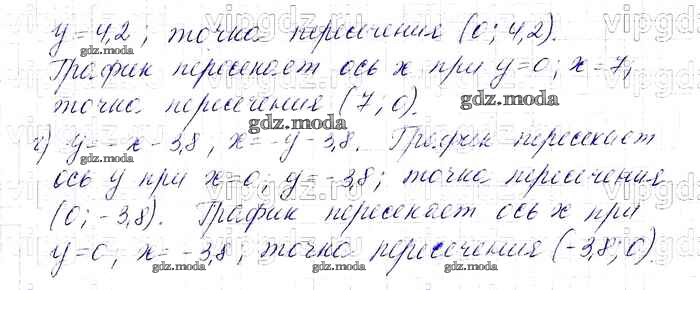 y = 4,2; точка пересечения (0; 4,2).
График пересекает ось x при y = 0; x = 7;
точка пересечения (7; 0).
г) y = -x - 3,8, x = -y - 3,8. График пересекает
ось y при x = 0; y = -3,8; точка пересечения
(0; -3,8). График пересекает ось x при
y = 0, x = -3,8; точка пересечения (-3,8; 0).
gdz.moda
gdz.moda
gdz.moda
gdz.moda
gdz.moda
gdz.moda
gdz.moda
gdz.moda
gdz.moda
gdz.moda